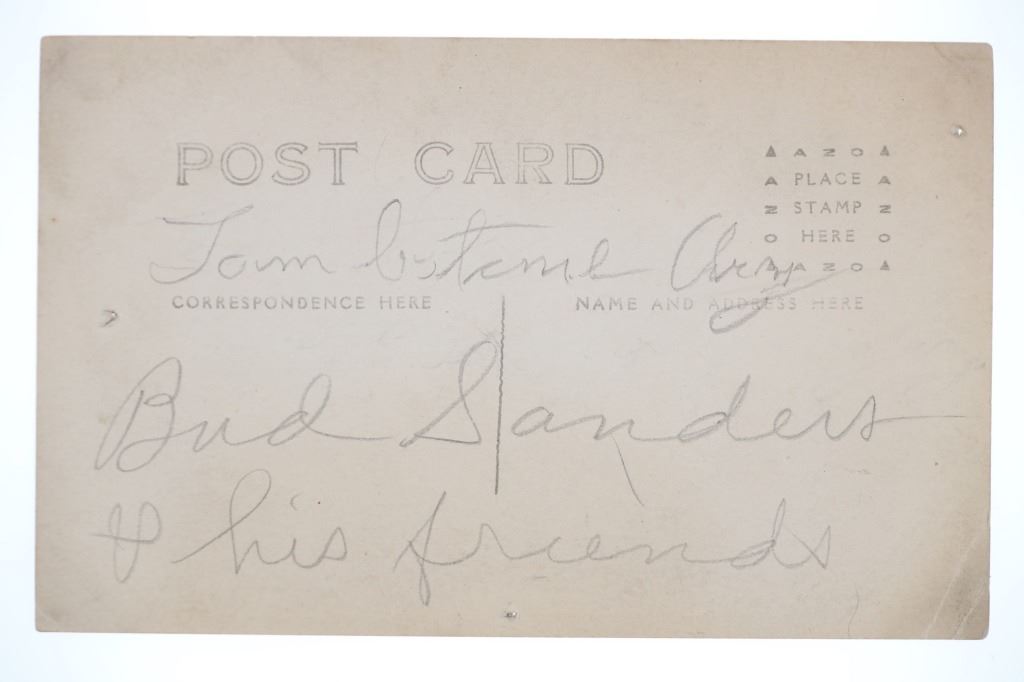 POST CARD
▲ A Z O ▲
A PLACE A
Z STAMP Z
O HERE O
▲ A Z O ▲
Tombstone Ariz
CORRESPONDENCE HERE
NAME AND ADDRESS HERE
Bud Sanders
& his friends